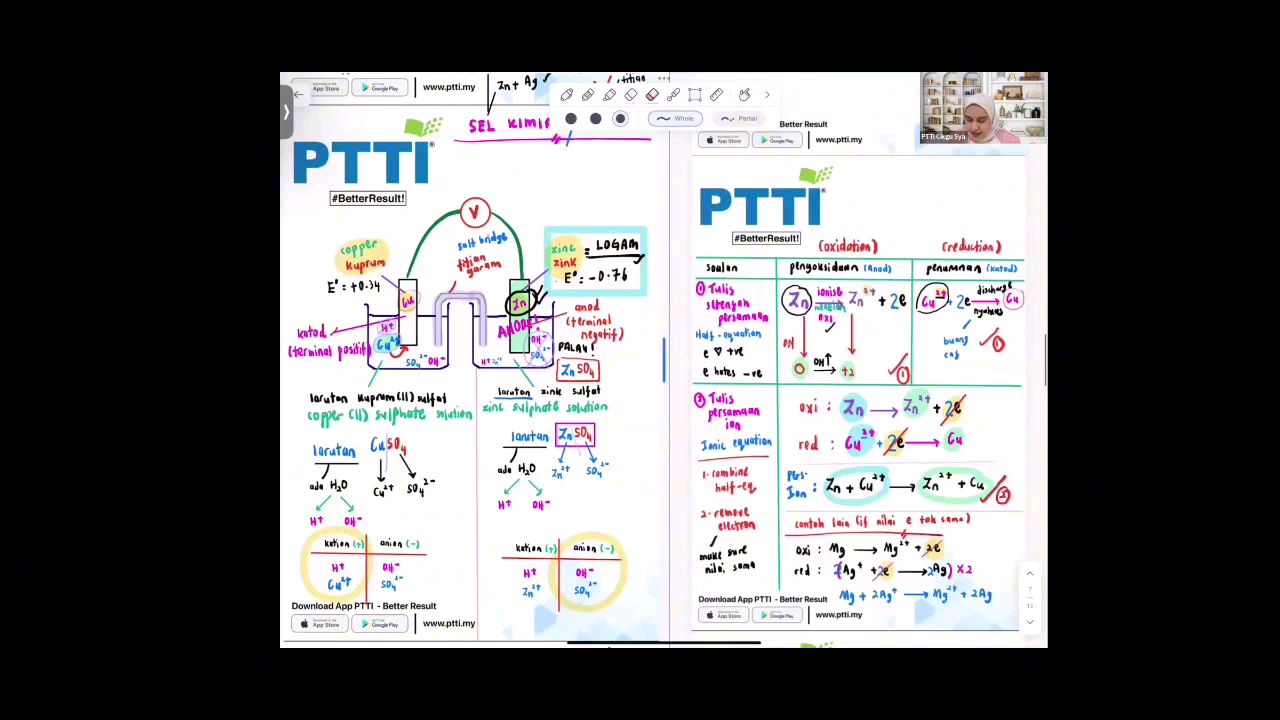 App Store
Google Play
www.ptti.my
Zn + Ag
titian
SEL KIMIA
Whole
Partial
PTTI
#BetterResult!
V
copper
kuprum
E° = +0.34
salt bridge
titian
garam
zinc
zink
= LOGAM
E° = -0.76
Cu
Zn
anod
(terminal
negatif)
ANODE!
katod
(terminal positif)
H+
Cu2+
SO4 2- OH-
H+ Zn2+
OH-
SO4 2-
PALAH!
ZnSO4
larutan kuprum(II) sulfat
copper (II) sulphate solution
larutan zink sulfat
zinc sulphate solution
larutan
CuSO4
ada H2O
Cu2+ SO4 2-
H+ OH-
larutan
ZnSO4
ada H2O
Zn2+ SO4 2-
H+ OH-
kation (+) anion (-)
H+ OH-
Cu2+ SO4 2-
kation (+) anion (-)
H+ OH-
Zn2+ SO4 2-
Download App PTTI - Better Result
App Store
Google Play
www.ptti.my
PTTI Cikgu Sya
Better Result
App Store
Google Play
www.ptti.my
PTTI
#BetterResult!
(oxidation) (reduction)
soalan pengoksidaan (Anod) penurunan (katod)
① Tulis
setengah
persamaan
Half-equation
e ♡ +ve
e hates -ve
Zn → Zn2+ + 2e
ionise
OXI
ON
0 ON↑ → +2
①
Cu2+ + 2e → Cu
discharge
nyahcas
buang
cas
①
② Tulis
persamaan
ion
Ionic equation
1. combine
half-eq
2. remove
electron
make sure
nilai sama
oxi : Zn → Zn2+ + 2e
red : Cu2+ + 2e → Cu
Pers.
Ion : Zn + Cu2+ → Zn2+ + Cu
contoh lain (if nilai e tak sama)
oxi : Mg → Mg2+ + 2e
red : 2(Ag+ + 2e → 2Ag) x 2
Mg + 2Ag+ → Mg2+ + 2Ag
Download App PTTI - Better Result
App Store
Google Play
www.ptti.my
7
13